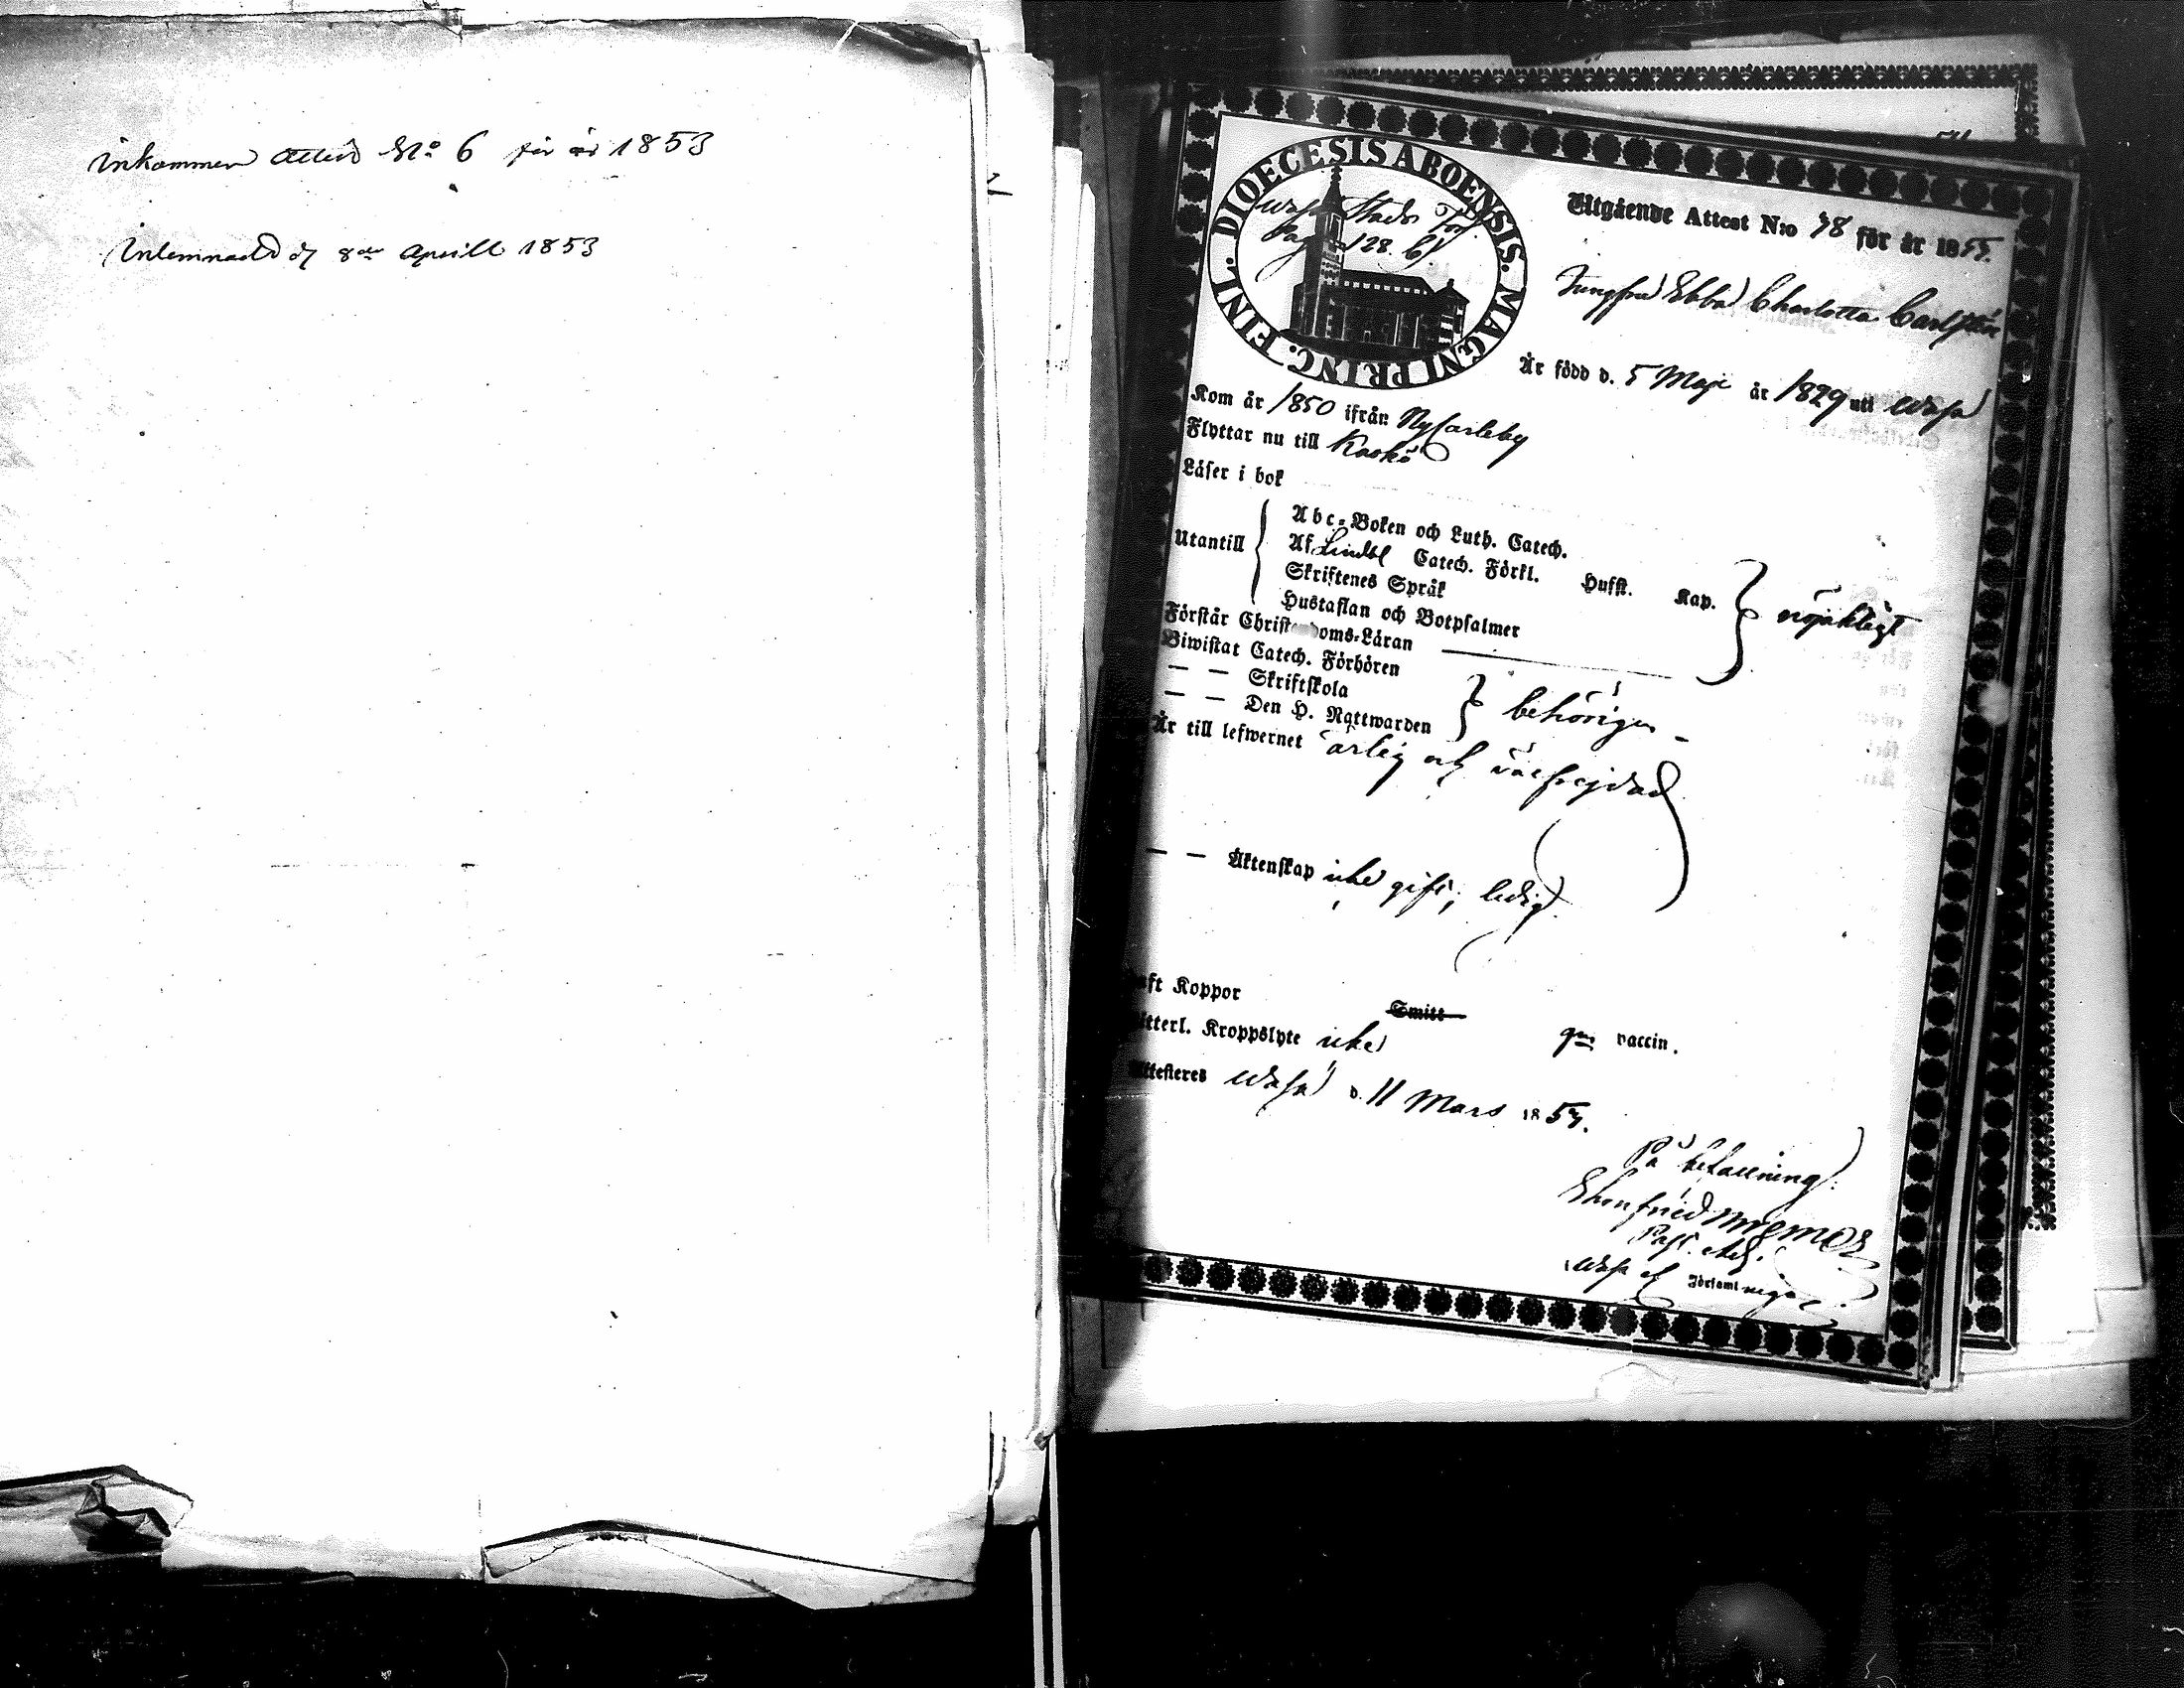 Inkommen Attest No 6 för år 1853
Inlemnad d 8de Aprill 1853
DIOECESIS ABOENSIS. MAGNI PRINC. FINL.
Wasa Stads
Pag 128. b)
Utgående Attest N:o 48 för år 1853.
Jungfru Ebba Charlotta
Är född d. 5 Maji år 1829 uti Wasa
Kom år 1850 ifrån NyCarleby
Flyttar nu till Kaskö
Läser i bok
Utantill
Abc-Boken och Luth. Catech.
Af Lindbl Catech. Förkl. Hufst. Kap.
Skriftenes Språk
Hustaflan och Botpsalmer
nöjaktigt
Förstår Christendoms-Läran
Biwistat Catech. Förhören
— — Skriftskola
— — Den H. Nattwarden
behörigen
Är till lefwernet ärlig och välfrejdad
— — Äktenskap icke gift; ledig
aft Koppor Smitt gm vaccin.
tterl. Kroppslyte icke
Attesteres Wasa d. 11 Mars 1853.
På befallning:
Ehrnfried
Past. adj.
Wasa Församl